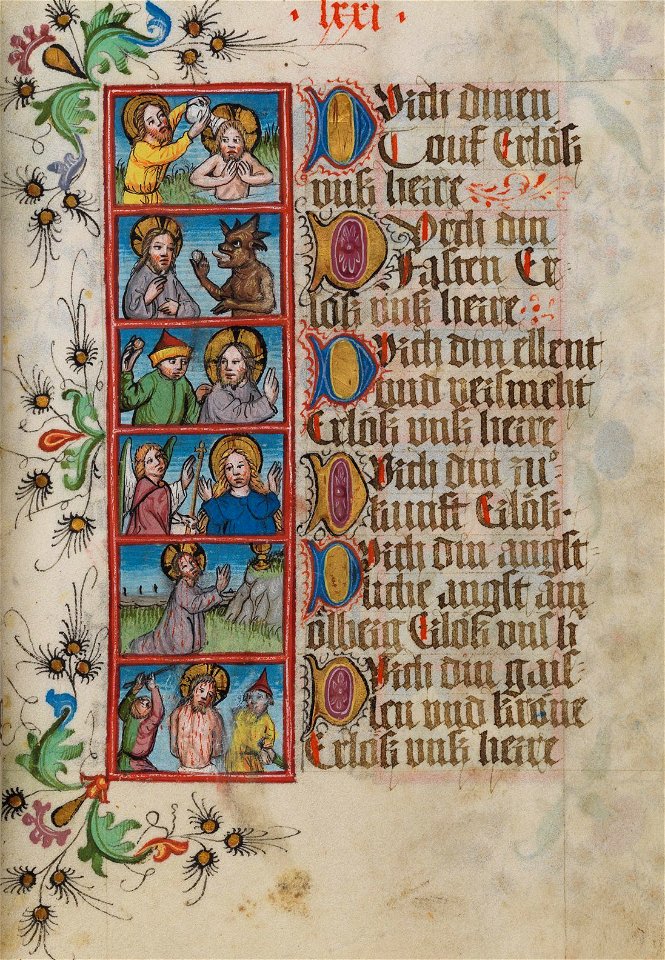 · lxxi ·
Dvrch dinen
Touf Erlöß
vnß herre
Dvrch din
Fasten Er-
löß vnß herre
Dvrch din ellent
vnd versmeht
Erlöß vnß herre
Dvrch din zuͦ-
kunft Erlöß.
Dvrch din angst-
liche angst am
ölberg Erlöß vns h
Dvrch din gais-
len vnd krone
Erlöß vnß herre